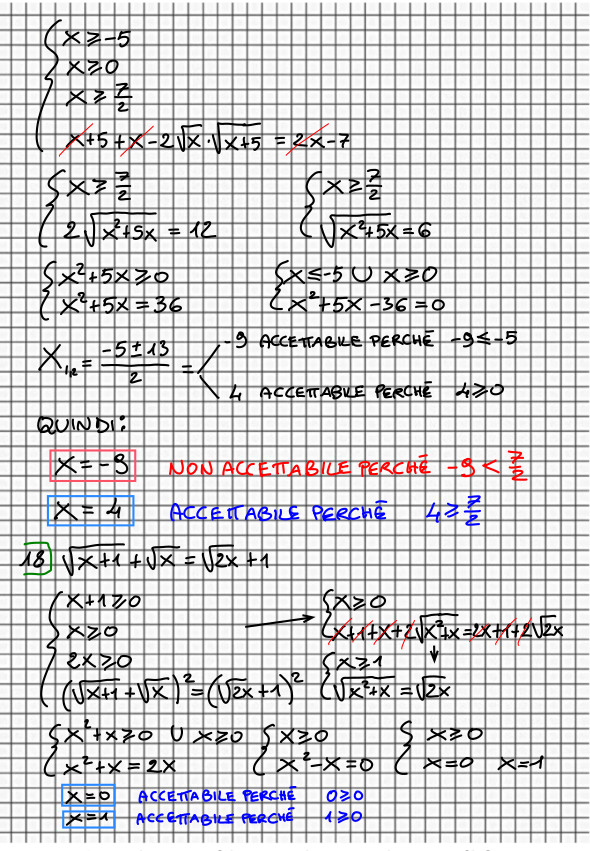 x ≥ -5
x ≥ 0
x ≥ 7/2
x+5 + x - 2√x · √x+5 = 2x - 7
x ≥ 7/2
2√x²+5x = 12
x ≥ 7/2
√x²+5x = 6
x²+5x ≥ 0
x²+5x = 36
x ≤ -5 ∪ x ≥ 0
x²+5x - 36 = 0
X₁,₂ = (-5 ± 13)/2 =
-9 ACCETTABILE PERCHÉ -9 ≤ -5
4 ACCETTABILE PERCHÉ 4 ≥ 0
QUINDI:
x = -9 NON ACCETTABILE PERCHÉ -9 < 7/2
x = 4 ACCETTABILE PERCHÉ 4 ≥ 7/2
18 √x+1 + √x = √2x + 1
x+1 ≥ 0
x ≥ 0
2x ≥ 0
(√x+1 + √x)² = (√2x + 1)²
x ≥ 0
x+1+x+2√x²+x = 2x+1+2√2x
x ≥ 1
√x²+x = √2x
x²+x ≥ 0 ∪ x ≥ 0
x²+x = 2x
x ≥ 0
x²-x = 0
x ≥ 0
x = 0 x = 1
x = 0 ACCETTABILE PERCHÉ 0 ≥ 0
x = 1 ACCETTABILE PERCHÉ 1 ≥ 0